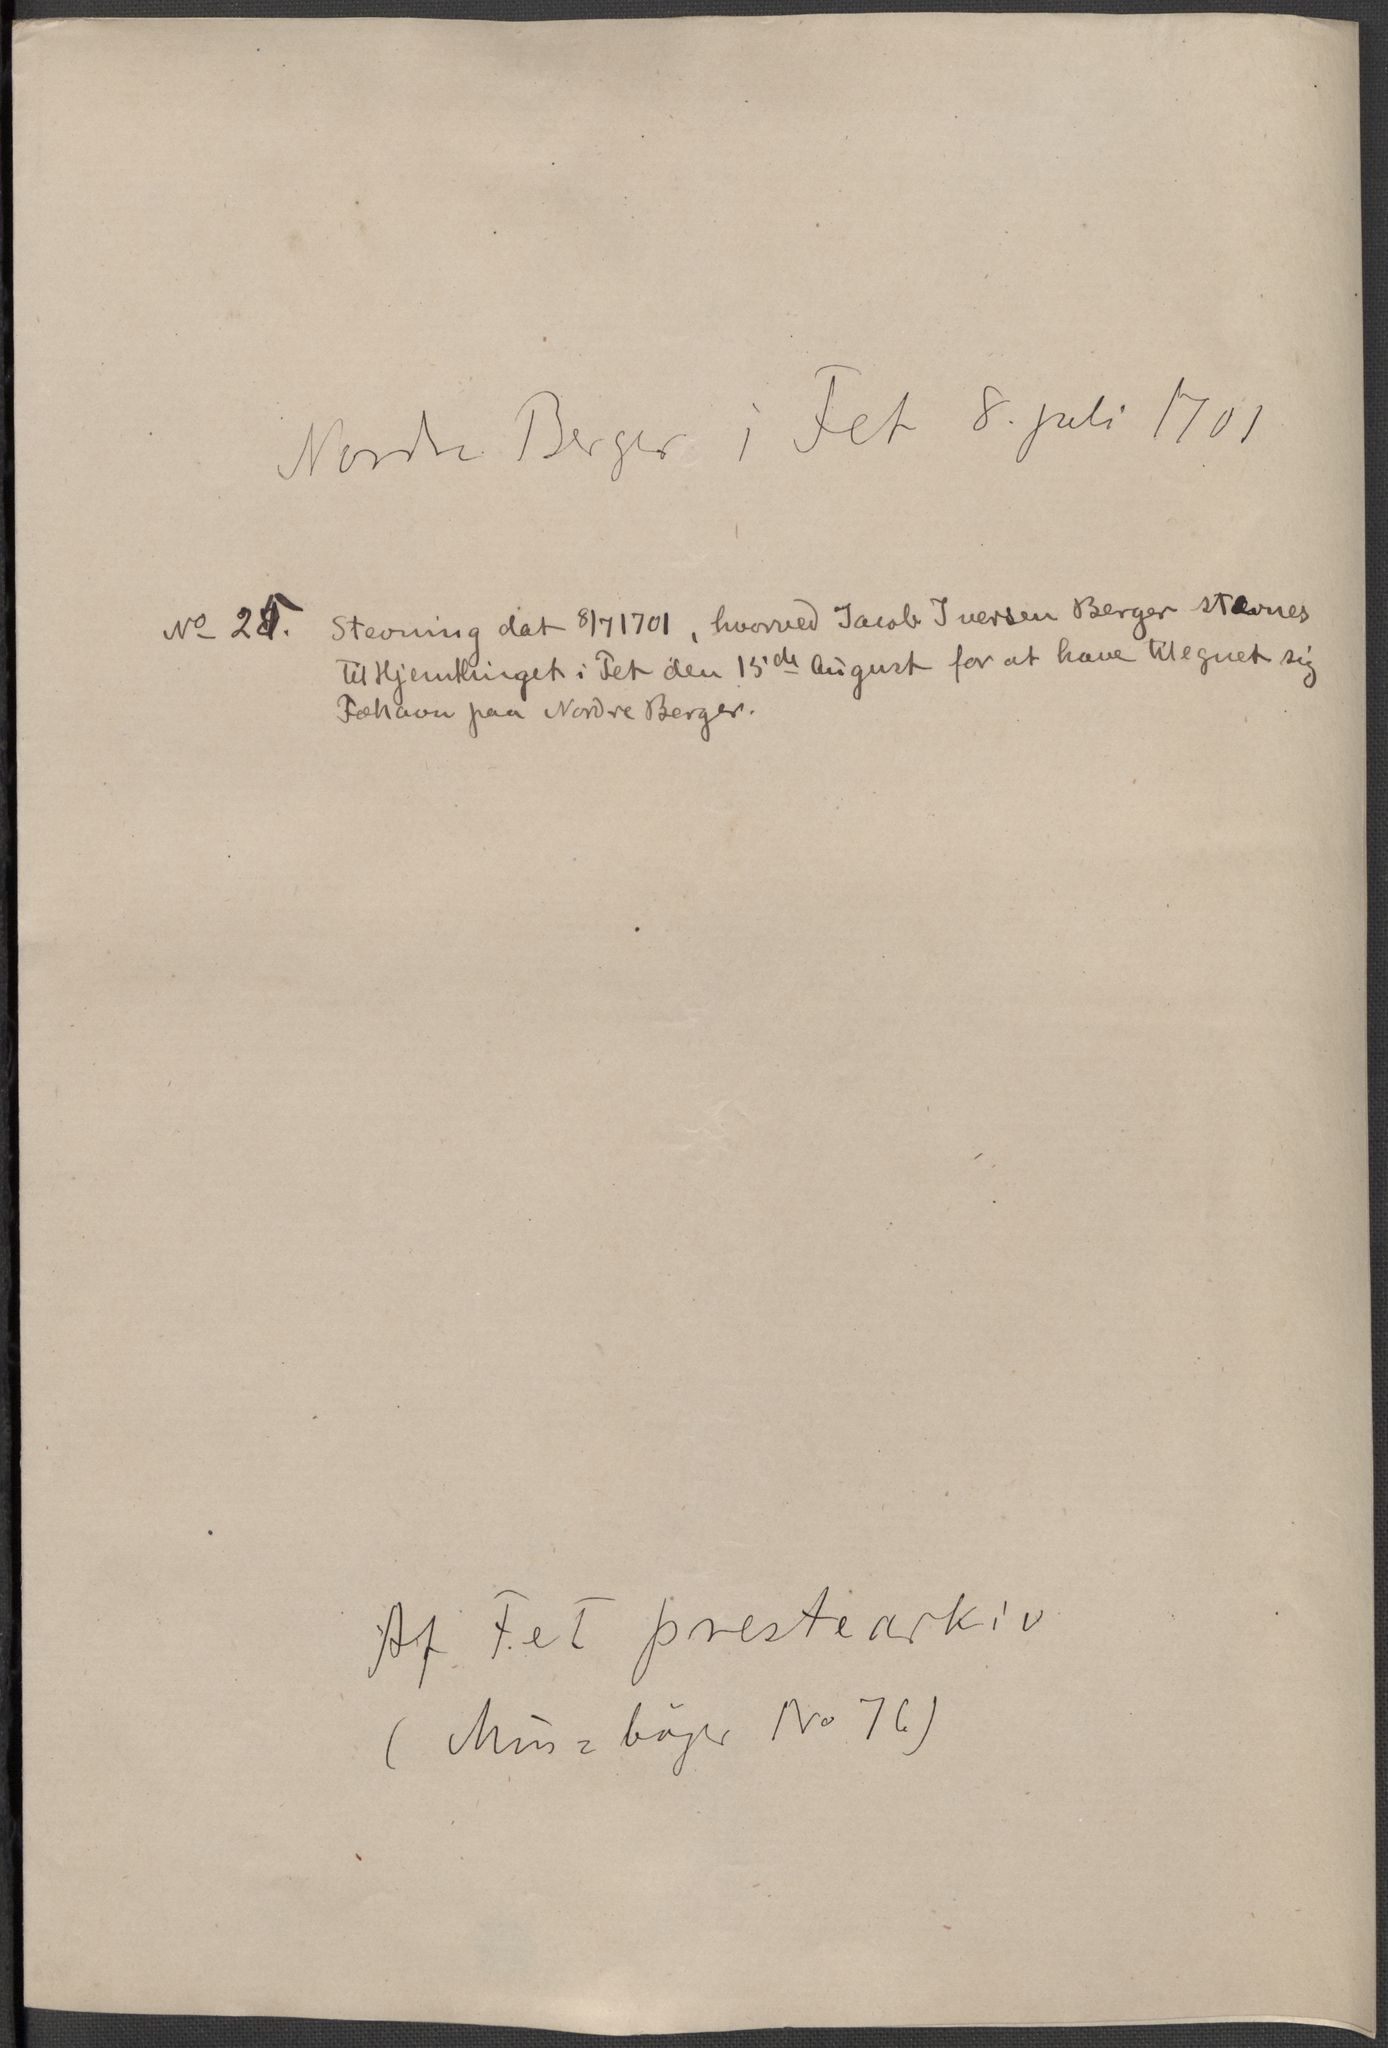 Nordre Berger i Fet 8. juli 1701
No 25. Stevning dat 8/7 1701, hvorved Jacob Iversen Berger stævnes
til Hjemthinget i Fet den 15de August for at have tilegnet sig
Fæhavn paa Nordre Berger.
Af Fet prestearkiv
(Münsbøger No 76)